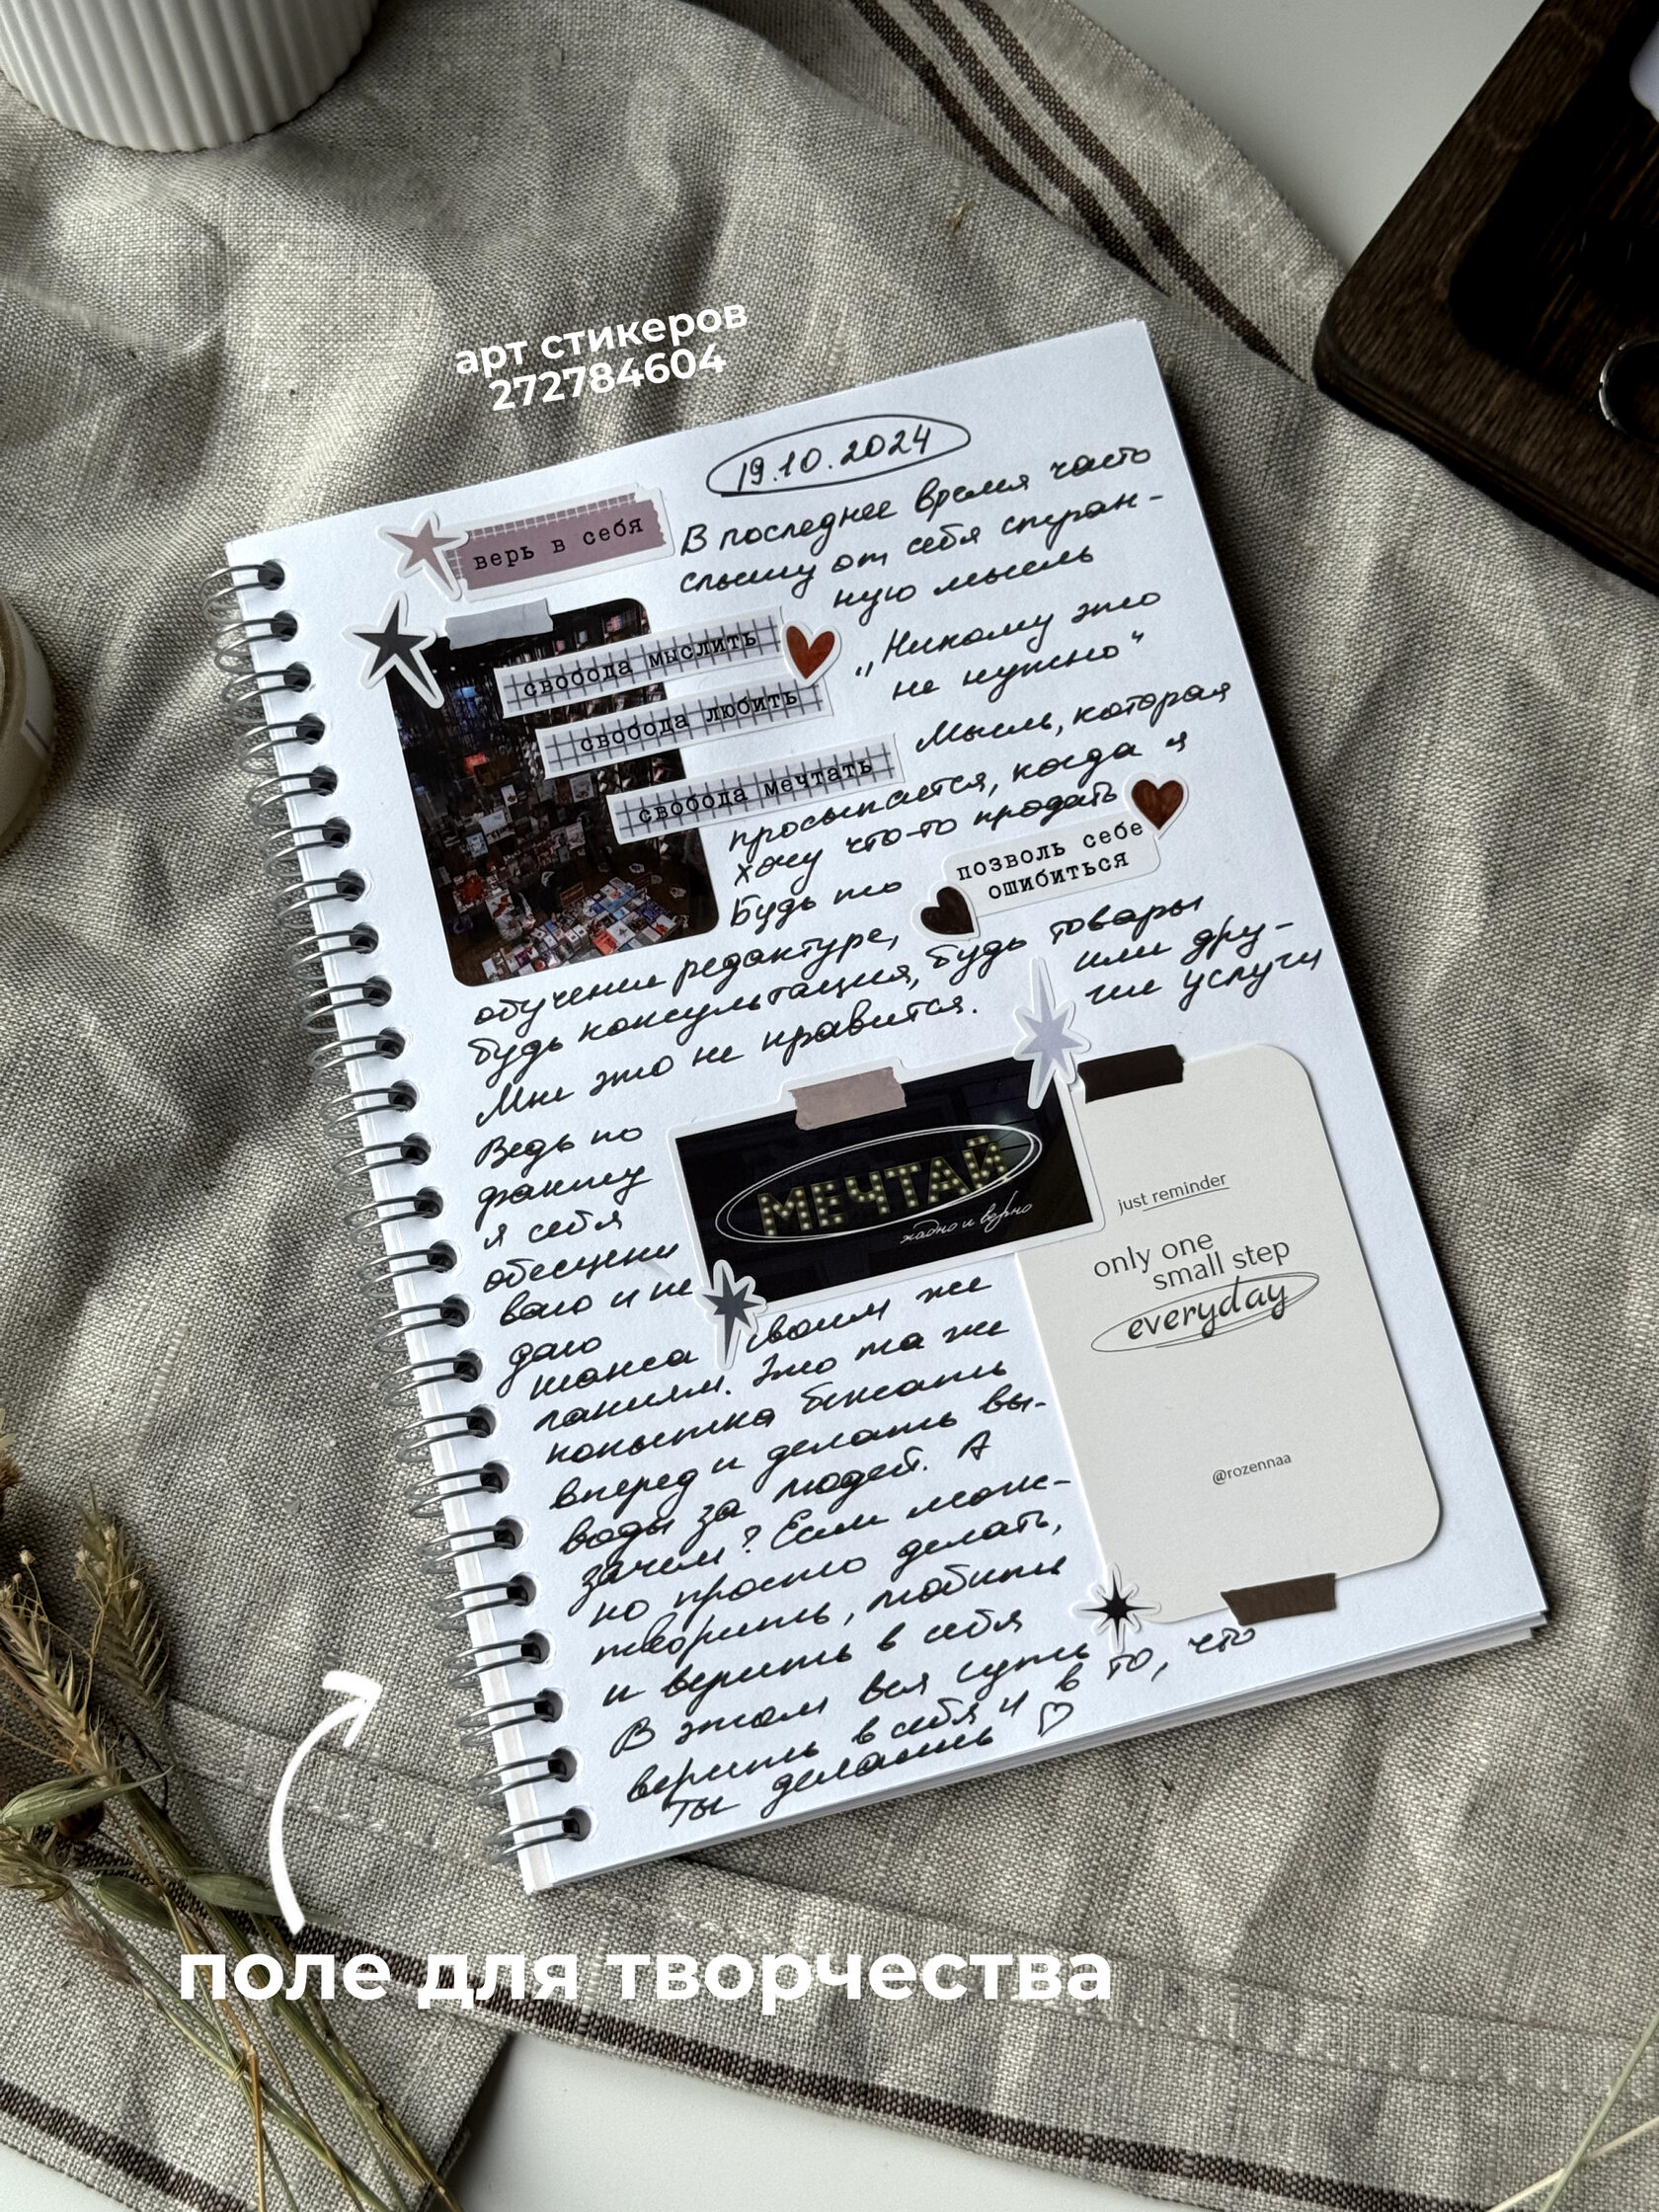 арт стикеров
272784604
19.10.2024
верь в себя
В последнее время часто
слышу от себя стран-
ную мысль
свобода мыслить
свобода любить
свобода мечтать
„Никому это
не нужно“
Мысль, которая
просыпается, когда я
хочу что-то продать
позволь себе
ошибиться
Будь то
обучении редактуре,
будь консультация, будь товары
или дру-
гие услуги
Мне это не нравится.
МЕЧТАЙ
жадно и верно
just reminder
only one
small step
everyday
@rozennaa
Ведь по
факту
я себя
обесцени
ваю и не
даю
шанса своим же
Это та же
попытка бежать
вперед и делать вы-
воды за людей. А
зачем? Если мож-
но просто делать,
творить, любить
и верить в себя
В этом вся суть
верить в себя и в то, что
ты делаешь ♡
поле для творчества